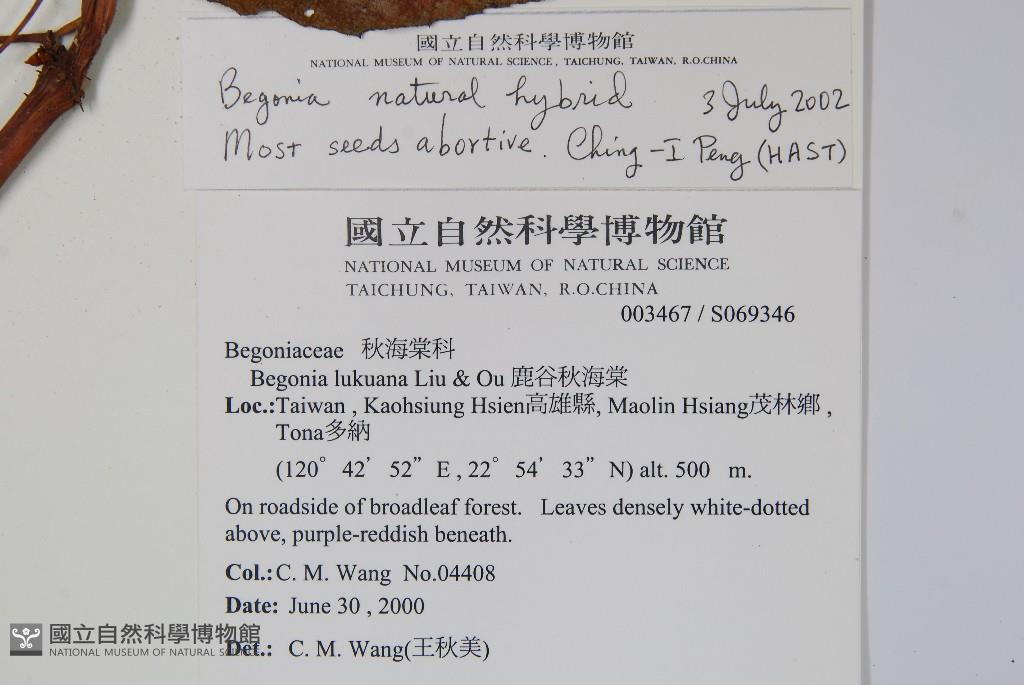 國立自然科學博物館
NATIONAL MUSEUM OF NATURAL SCIENCE, TAICHUNG, TAIWAN, R.O.CHINA
Begonia natural hybrid 3 July 2002
Most seeds abortive. Ching-I Peng (HAST)
國立自然科學博物館
NATIONAL MUSEUM OF NATURAL SCIENCE
TAICHUNG, TAIWAN, R.O.CHINA
003467 / S069346
Begoniaceae 秋海棠科
Begonia lukuana Liu & Ou 鹿谷秋海棠
Loc.:Taiwan , Kaohsiung Hsien高雄縣, Maolin Hsiang茂林鄉 ,
Tona多納
(120° 42’ 52” E , 22° 54’ 33” N) alt. 500 m.
On roadside of broadleaf forest. Leaves densely white-dotted
above, purple-reddish beneath.
Col.: C. M. Wang No.04408
Date: June 30 , 2000
Det.: C. M. Wang(王秋美)
國立自然科學博物館
NATIONAL MUSEUM OF NATURAL SCIENCE